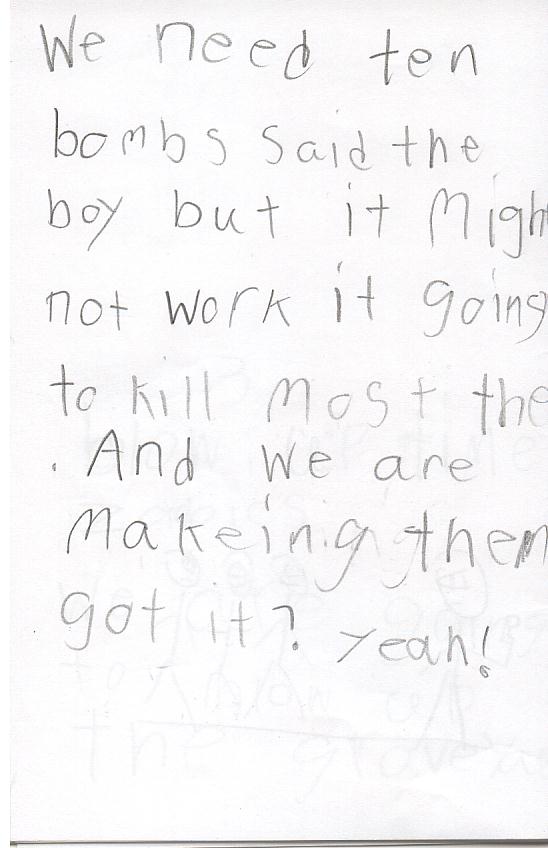 We need ten
bombs said the
boy but it Migh
not work it going
to kill Most the
. And We are
Makeing them
got it? Yeah!